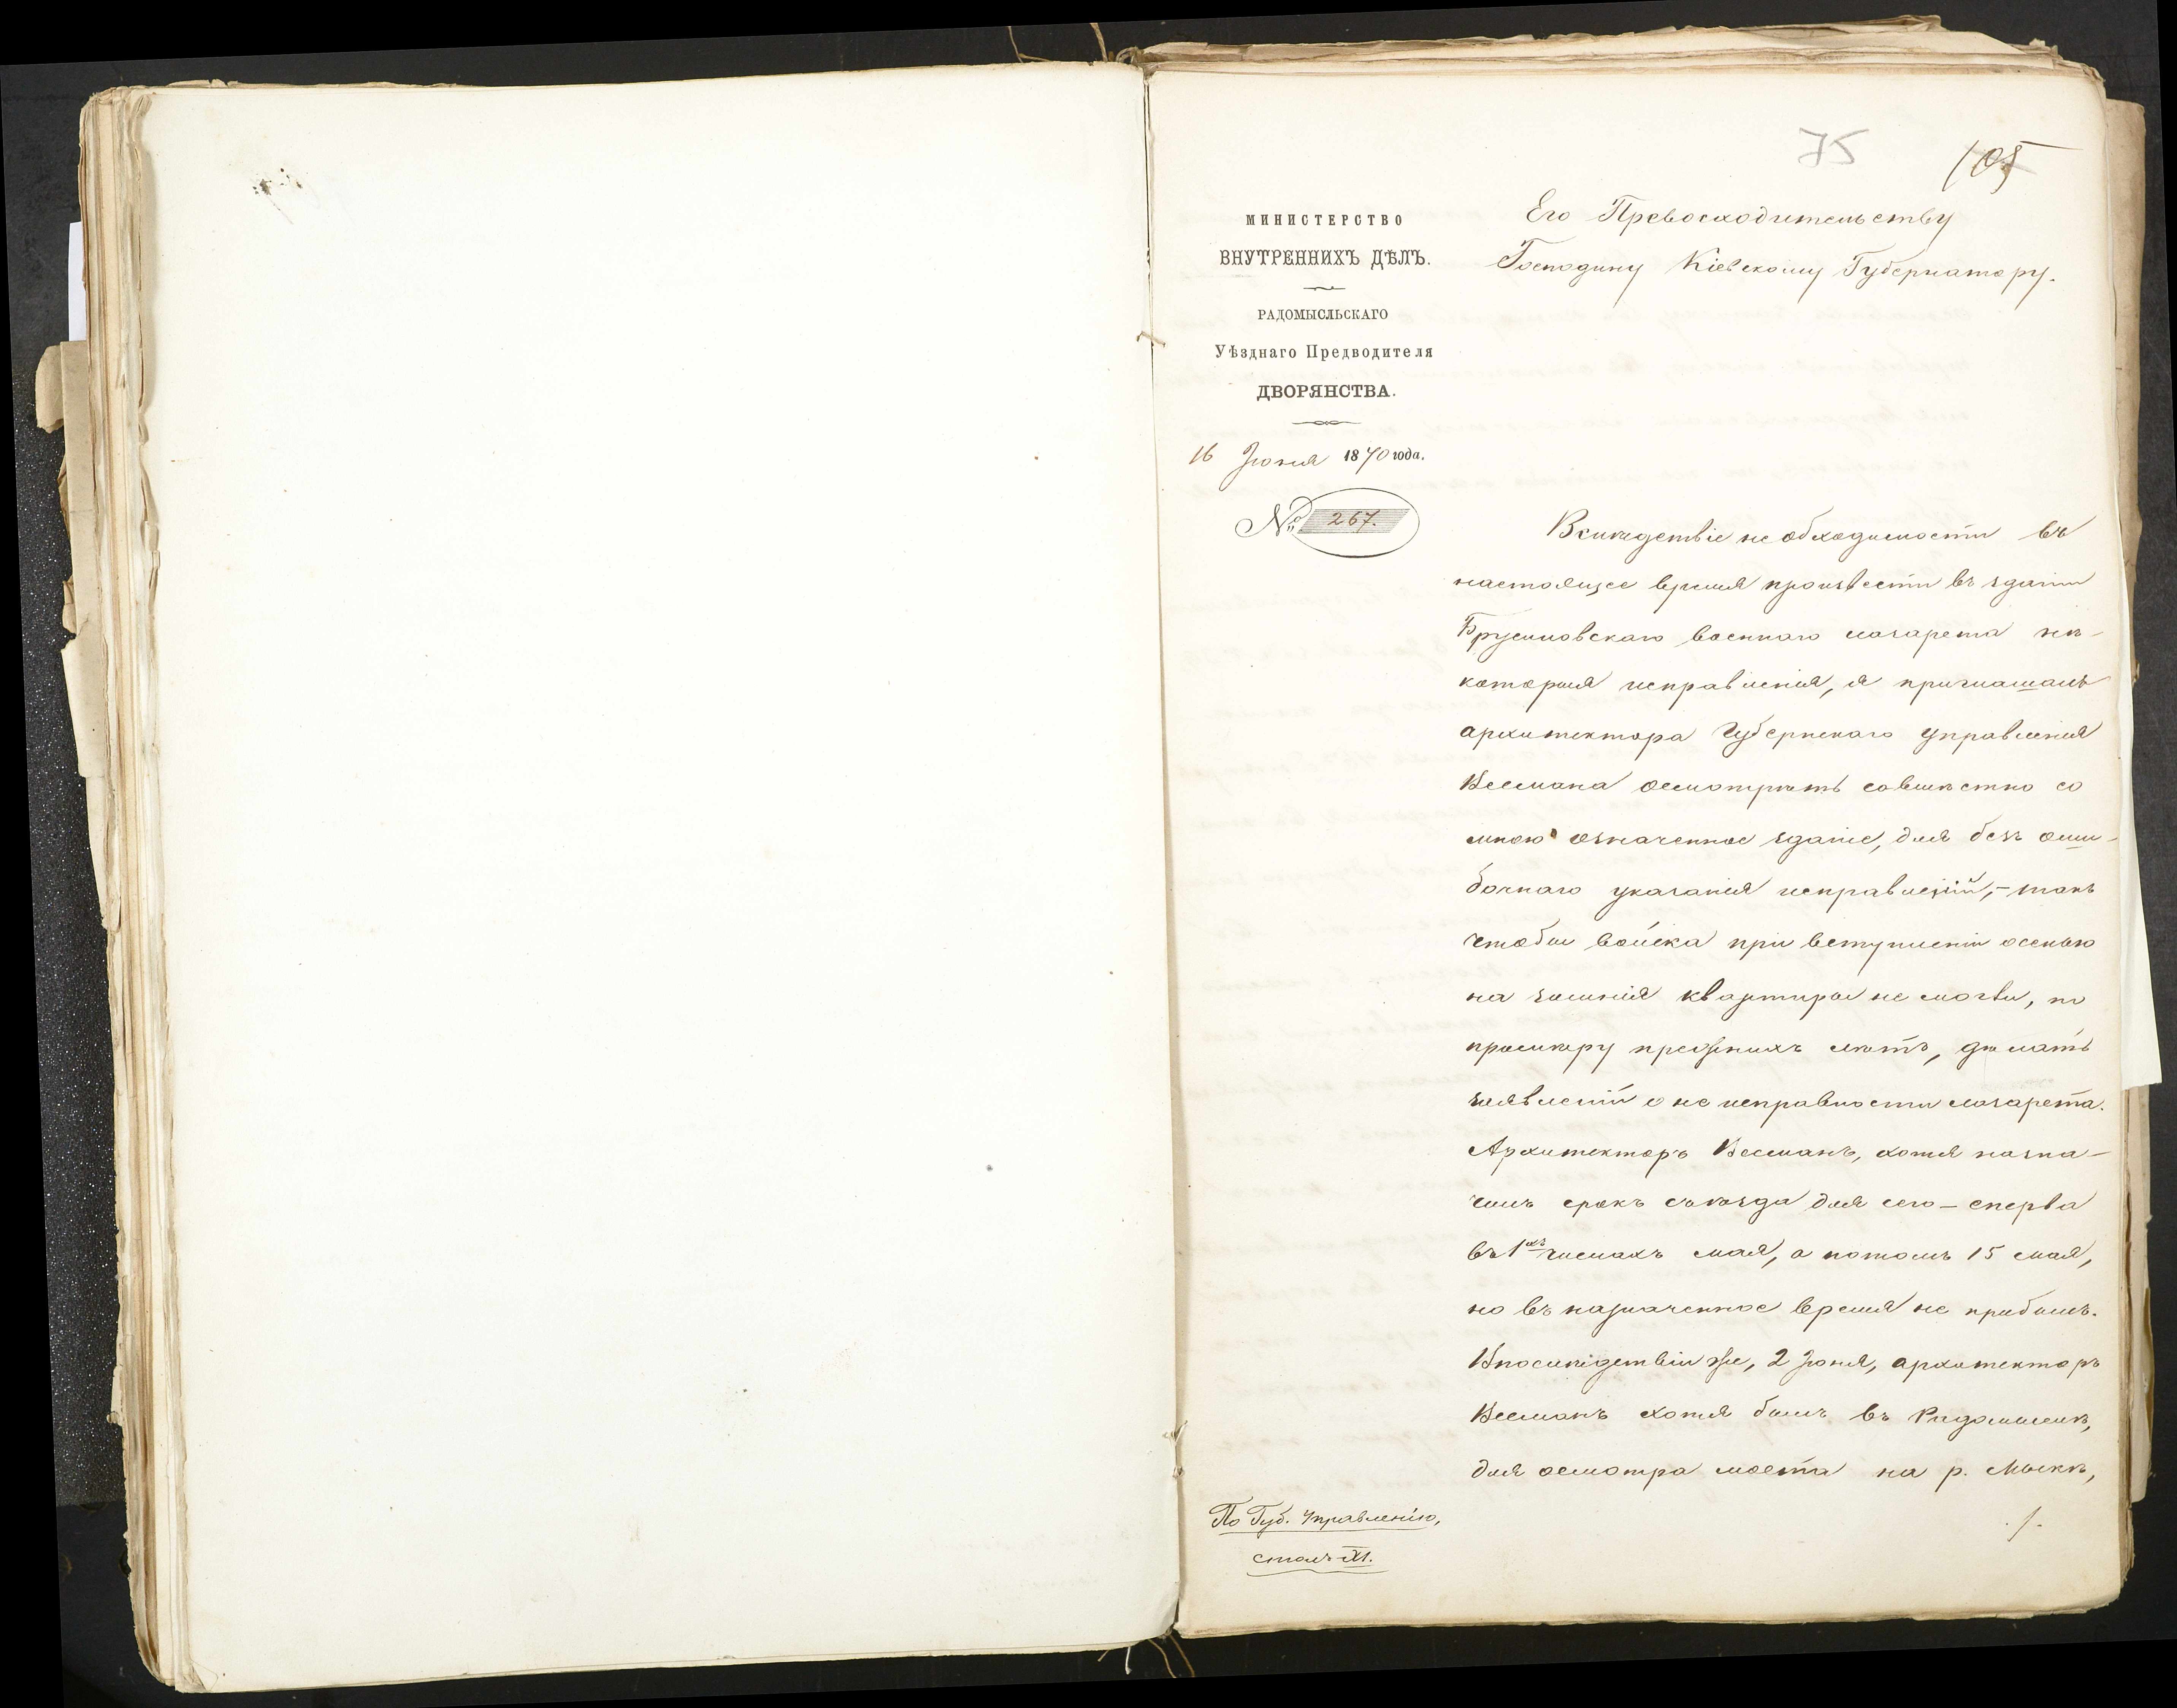 75
105
МИНИСТЕРСТВО
ВНУТРЕННИХЪ ДѢЛЪ.
РАДОМЫСЛЬСКАГО
Уѣзднаго Предводителя
ДВОРЯНСТВА.
16 Іюня 1870 года.
№ 267.
Его Превосходительству
Господину Кіевскому Губернатору.
Вслѣдствіе необходимости въ
настоящее время произвести въ зданіи
Брусиловскаго военнаго лазарета нѣ-
которыя исправленія, я приглашалъ
архитектора Губернскаго управленія
Весмана осмотрѣть совмѣстно со
мною означенное зданіе, для безъ оши-
бочнаго указанія исправленій,- такъ
чтобы войска при вступленіи осенью
на зимнія квартиры не могли, по
примѣру прежнихъ лѣтъ, дѣлать
заявленій о не исправности лазарета.
Архитекторъ Весманъ, хотя назна-
чилъ срокъ съѣзда для сего - сперва
въ 1хъ числахъ мая, а потомъ 15 мая,
но въ назначенное время не прибылъ.
Впослѣдствіи же, 2 Іюня, архитекторъ
Весманъ хотя былъ въ Радомыслѣ,
для осмотра моста на р. Мыкѣ,
./.
По Губ. Управленію,
столъ XI.